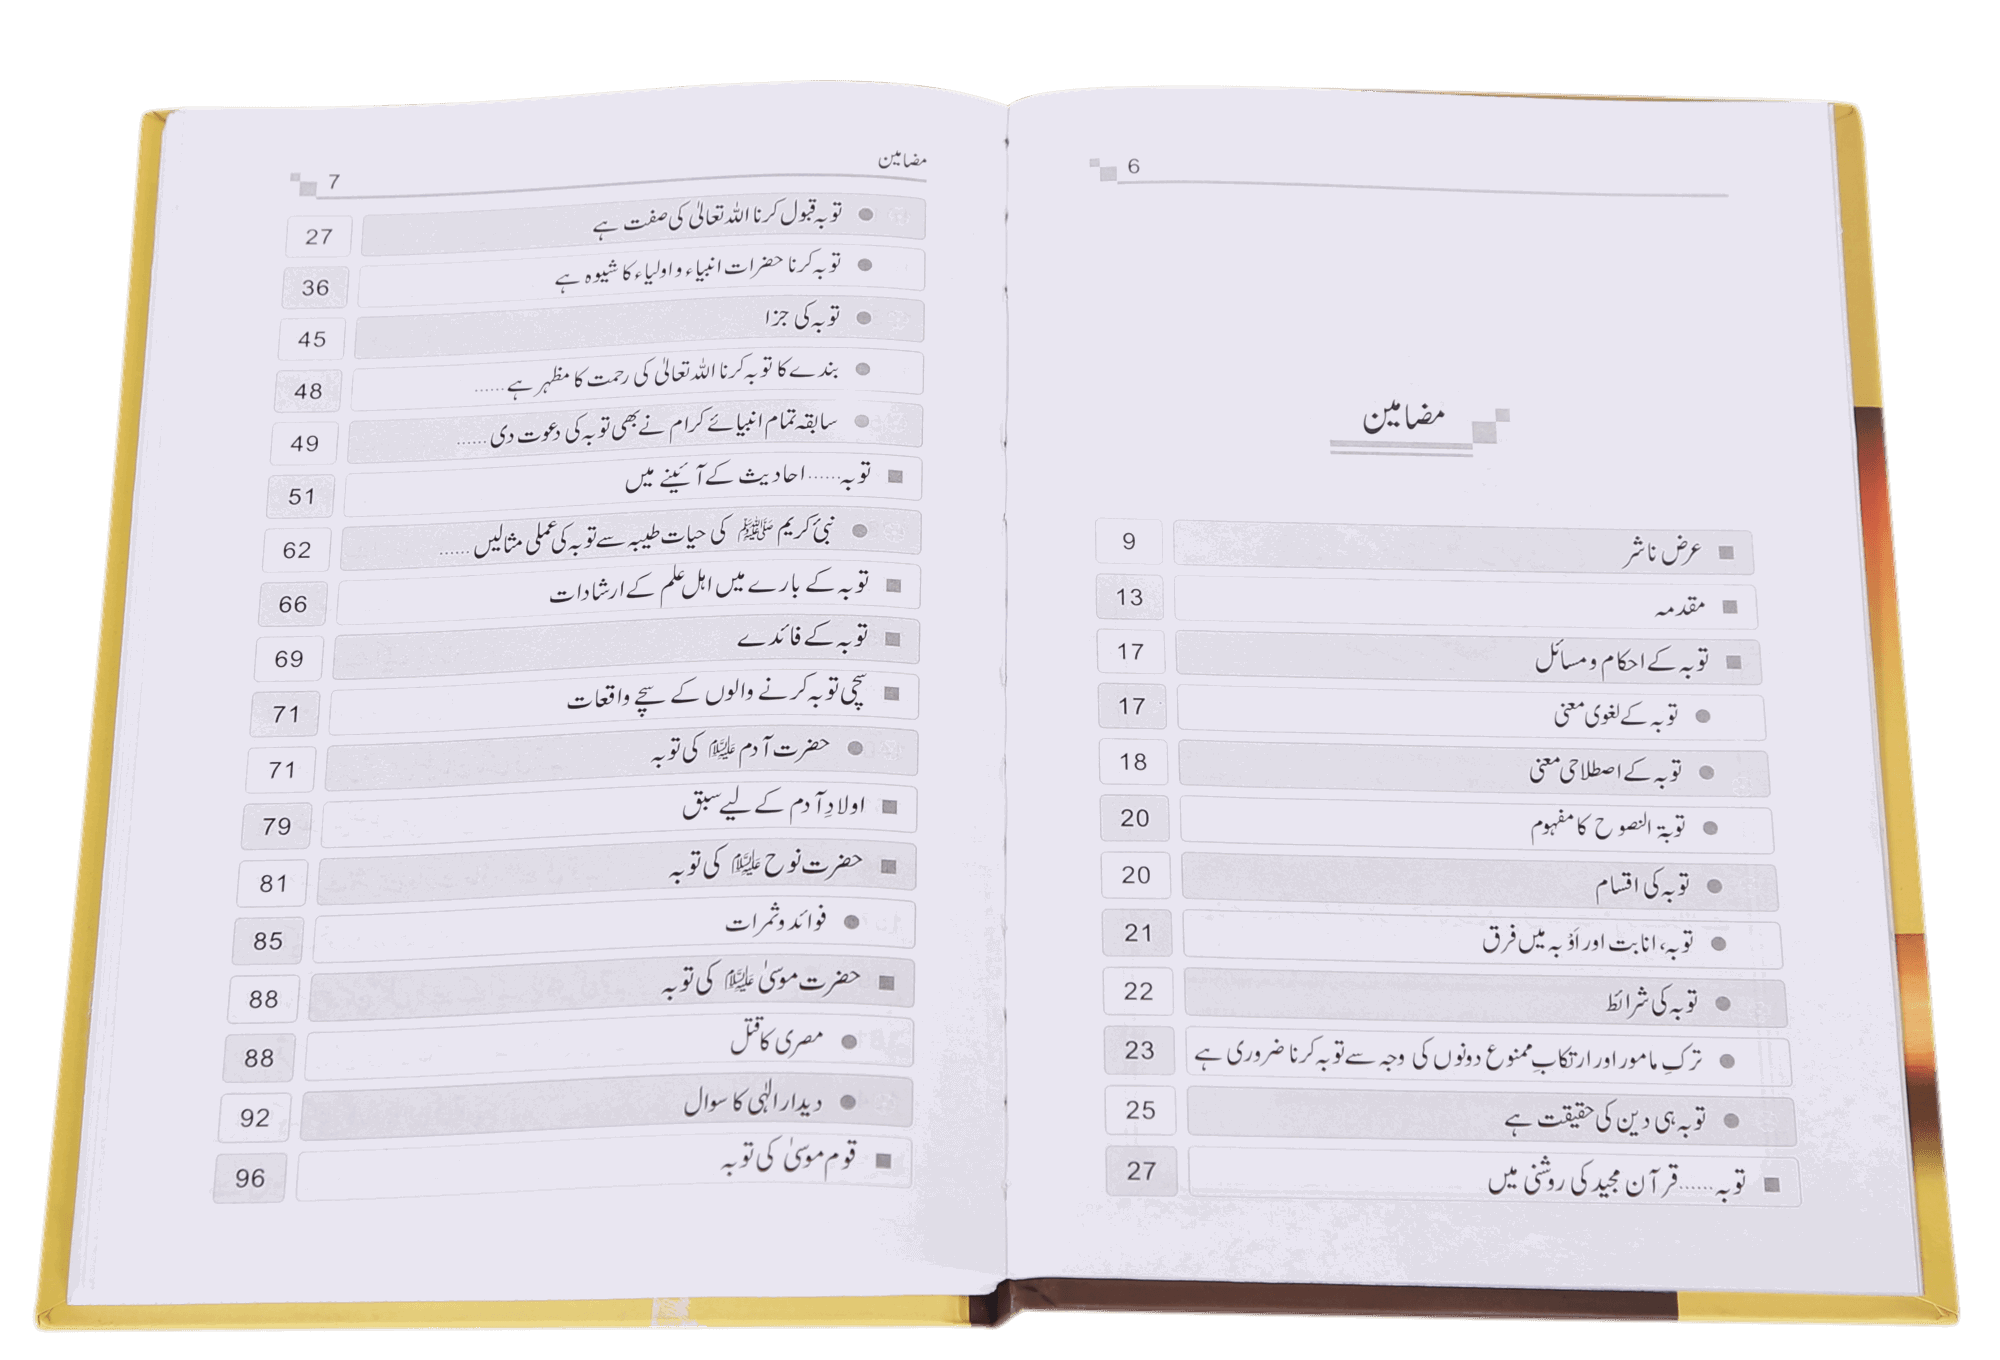 6
مضامین
عرض ناشر 9
مقدمہ 13
توبہ کے احکام و مسائل 17
توبہ کے لغوی معنی 17
توبہ کے اصطلاحی معنی 18
توبۃ النصوح کا مفہوم 20
توبہ کی اقسام 20
توبہ، انابت اور اَوْبہ میں فرق 21
توبہ کی شرائط 22
ترکِ مامور اور ارتکابِ ممنوع دونوں کی وجہ سے توبہ کرنا ضروری ہے 23
توبہ ہی دین کی حقیقت ہے 25
توبہ......قرآن مجید کی روشنی میں 27
مضامین 7
توبہ قبول کرنا اللہ تعالیٰ کی صفت ہے 27
توبہ کرنا حضرات انبیاء و اولیاء کا شیوہ ہے 36
توبہ کی جزا 45
بندے کا توبہ کرنا اللہ تعالیٰ کی رحمت کا مظہر ہے...... 48
سابقہ تمام انبیائے کرام نے بھی توبہ کی دعوت دی...... 49
توبہ......احادیث کے آئینے میں 51
نبیٔ کریم ﷺ کی حیات طیبہ سے توبہ کی عملی مثالیں...... 62
توبہ کے بارے میں اہل علم کے ارشادات 66
توبہ کے فائدے 69
سچی توبہ کرنے والوں کے سچے واقعات 71
حضرت آدم علیہ السلام کی توبہ 71
اولادِ آدم کے لیے سبق 79
حضرت نوح علیہ السلام کی توبہ 81
فوائد و ثمرات 85
حضرت موسیٰ علیہ السلام کی توبہ 88
مصری کا قتل 88
دیدار الٰہی کا سوال 92
قوم موسیٰ کی توبہ 96